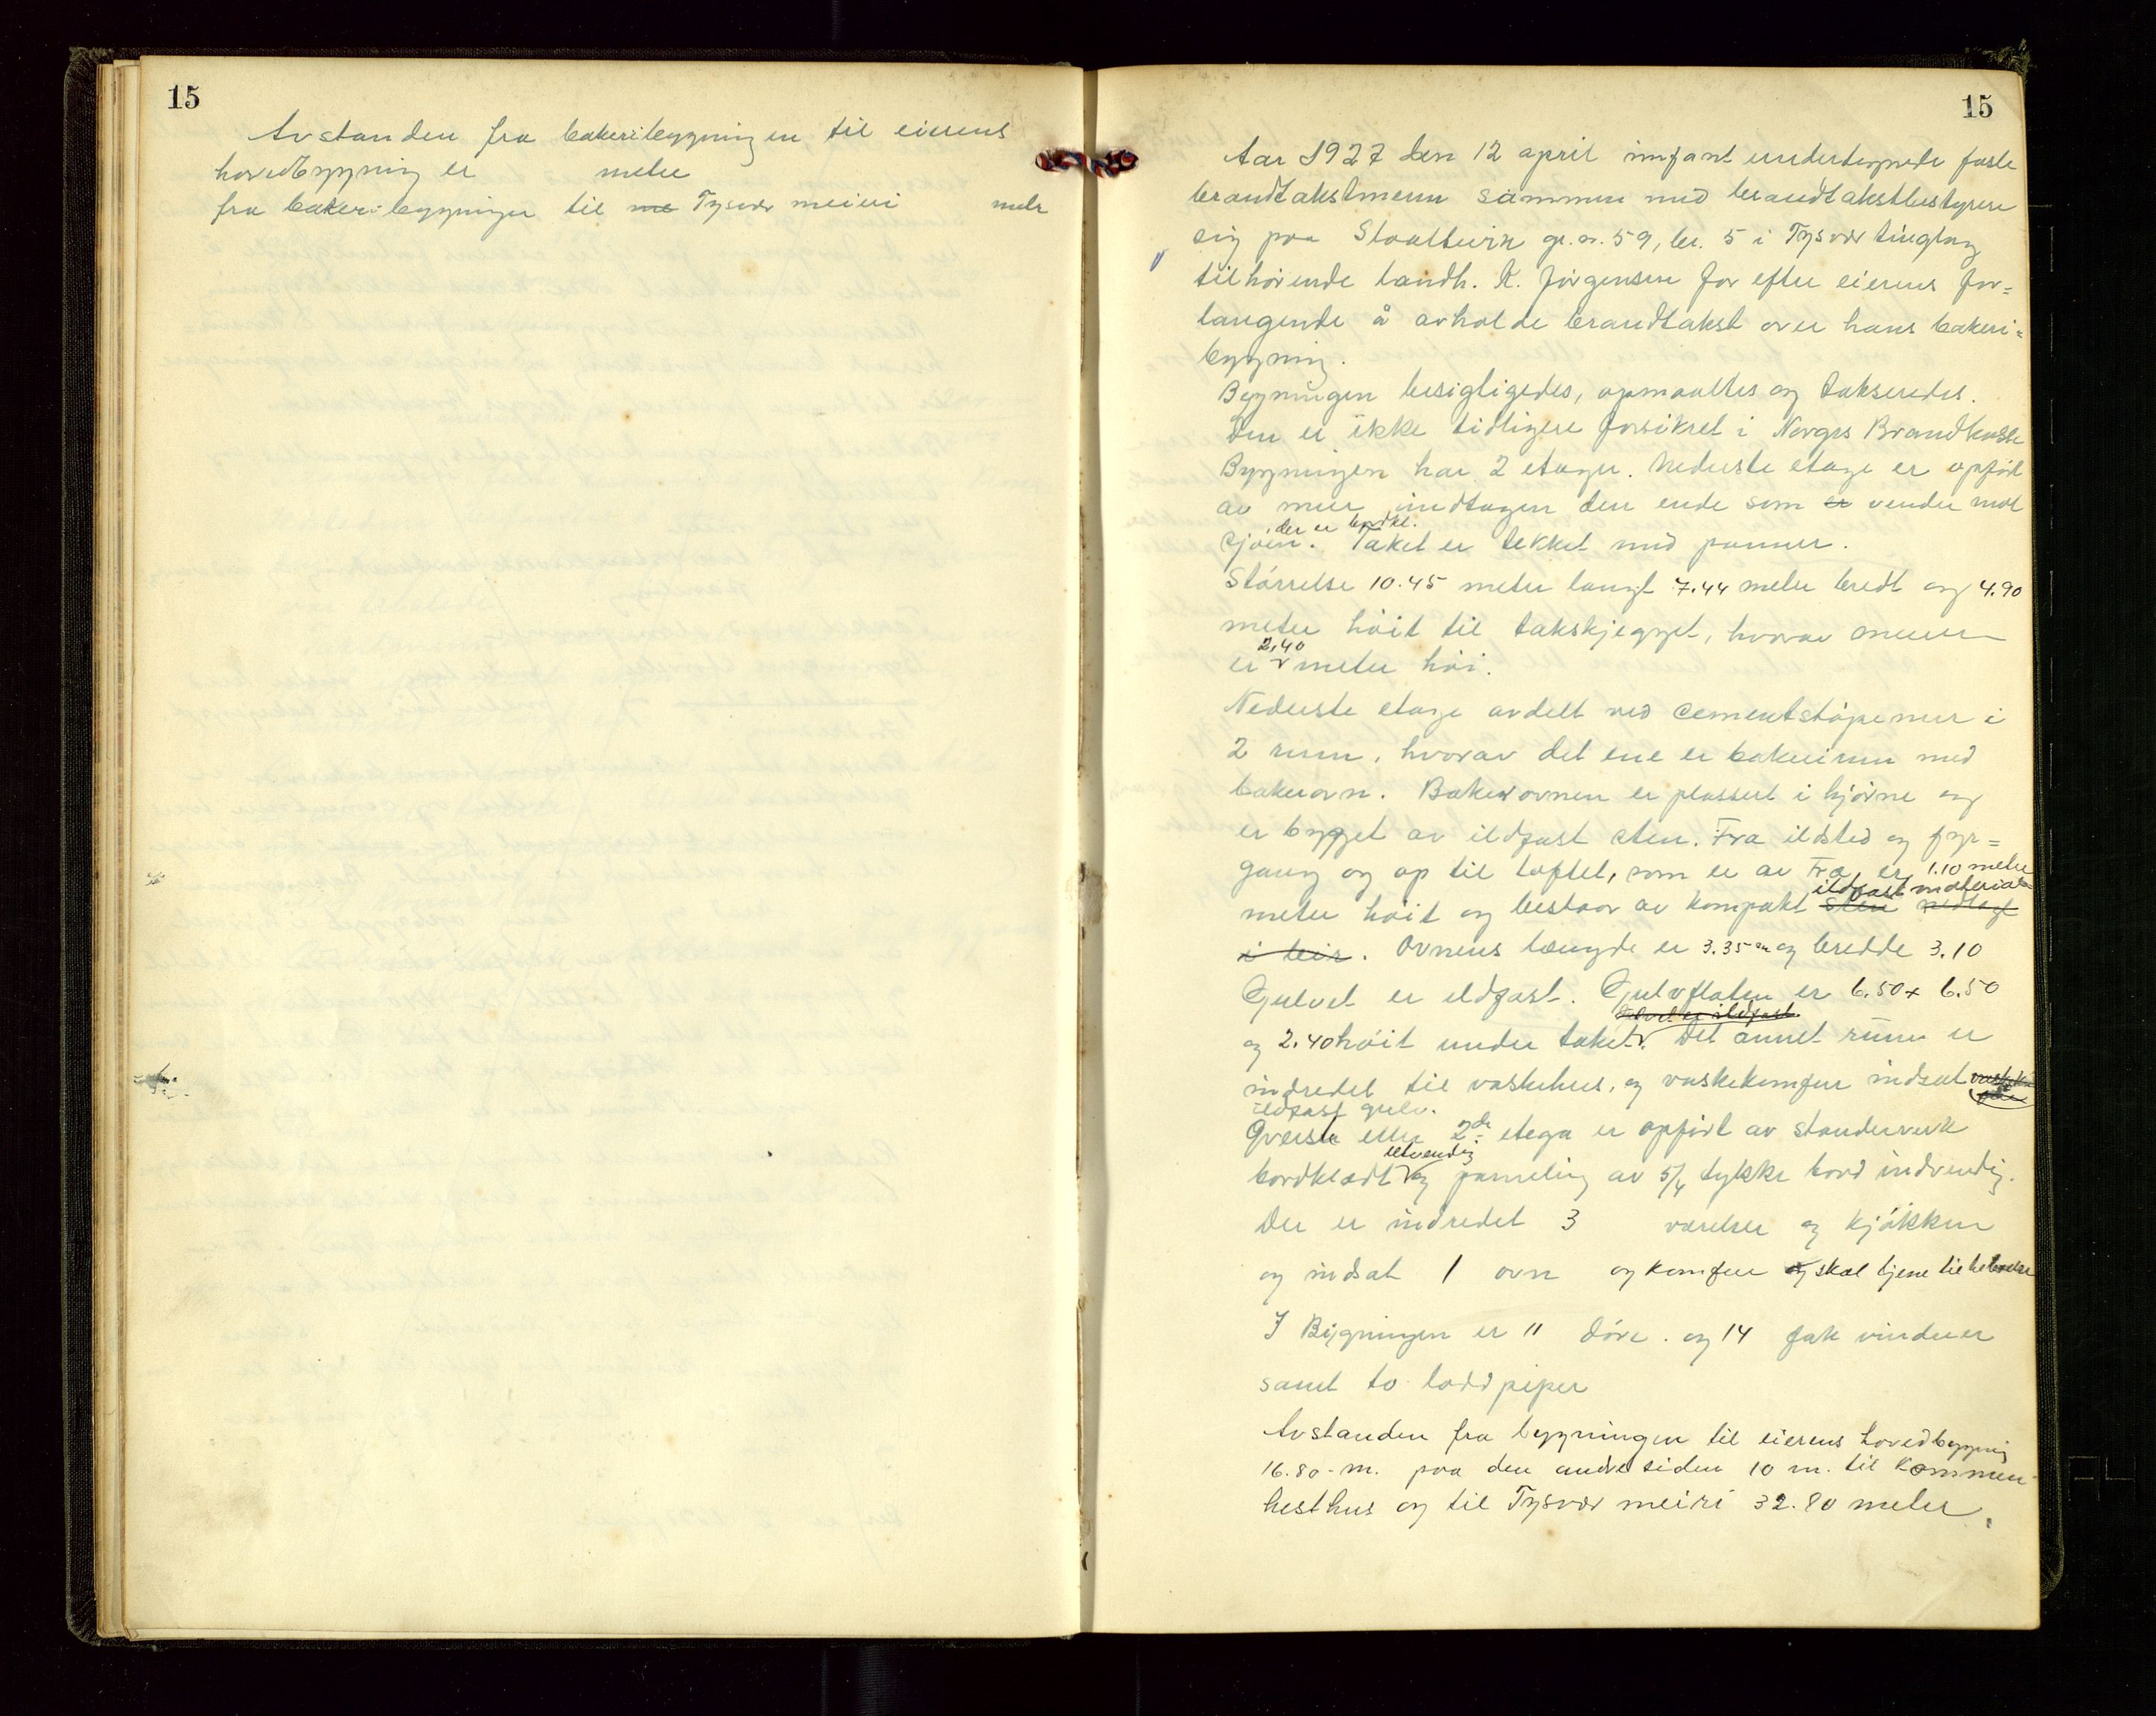 15
Avstanden fra bakeribygningen til eierens
hovedbygning er meter
fra bakeribygningen til me Tysvær meieri meter
15
Aar 1927 den 12 april innfant undertegnede faste
brandtakstmenn sammen med brandtakstbestyrer
sig paa Slaattevik gr.n. 59, br. 5 i Tysvær tinglag
tilhørende landh. R. Jørgensen for efter eierens for=
langende å avholde brandtakst over hans bakeri=
bygning.
Bygningen besigtigedes, opmaaltes og takseredes.
Den er ikke tidligere forsikret i Norges Brandkasse
Bygningen har 2 etager. Nederste etage er opført
av mur undtagen den ende som er vender mot
sjøen. der er bordkl. Taket er tekket med panner.
Størrelse 10.45 meter langt 7.44 meter bredt og 4.90
meter høit til takskjegget, hvorav muren
er 2,40 meter høi.
Nederste etage avdelt ved cementstøpemur i
2 rum, hvorav det ene er bakerirum med
bakerovn. Bakerovnen er plassert i hjørne og
er bygget av ildfast sten. Fra ildsted og fyr=
gang og op til loftet, som er av Træ, er 1.10 meter
meter høit og bestaar av kompakt sten nedlagt ildfast materiale
i leir. Ovnens længde er 3.35 m og bredde 3.10
Gulvet er ildfast. Gulvflaten er 6.50 x 6.50
og 2.40 høit under taket. Gulvet er ildfast. Det annet rum er
indredet til vaskehus, og vaskekomfur indsat
ildfast gulv.
Øverste eller 2de etage er opført av stenderverk
bordklædt utvendig og paneling av 5/4 tykke bord indvendig.
Der er indredet 3 værelser og kjøkken
og indsat 1 ovn og komfur og skal tjene til beboelse
I Bygningen er 11 døre. og 14 fak vinduer
samt to loddpiper
Avstanden fra bygningen til eierens hovedbygning
16.80 m. paa den andre siden 10 m. til kommun
hesthus og til Tysvær meiri 32.80 meter.